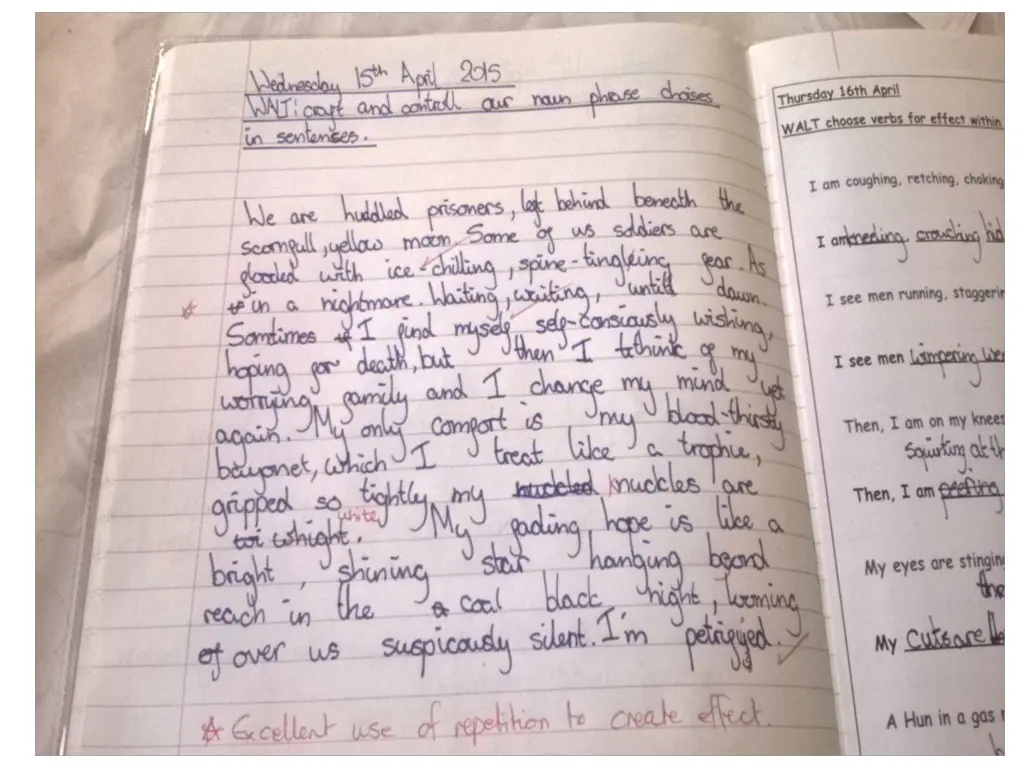 Wednesday 15th April 2015
WALT: craft and controll our noun phrase choises
in sentences.
We are huddled prisoners, left behind beneath the
scornfull, yellow moon. Some of us soldiers are
flooded with ice-chilling, spine-tingleing fear. As
in a nightmare. Waiting, waiting, untill dawn.
Somtimes I find myself self-consiously wishing,
hoping for death, but then I think of my
worrying family and I change my mind yet
again. My only comfort is my blood-thirsty
bayonet, which I treat like a trophie,
gripped so tightly my knuckles are
white
whight. My fading hope is like a
bright, shining star hanging beond
reach in the coal black night, looming
over us suspicously silent. I'm petrifyed.
☆ Excellent use of repetition to create effect.
Thursday 16th April
WALT choose verbs for effect within
I am coughing, retching, choking
I am kneeling, crouching hid
I see men running, staggerin
I see men wimpering
Then, I am on my knees
Squirting at th
Then, I am
My eyes are stinging
the
My cuts are
A Hun in a gas